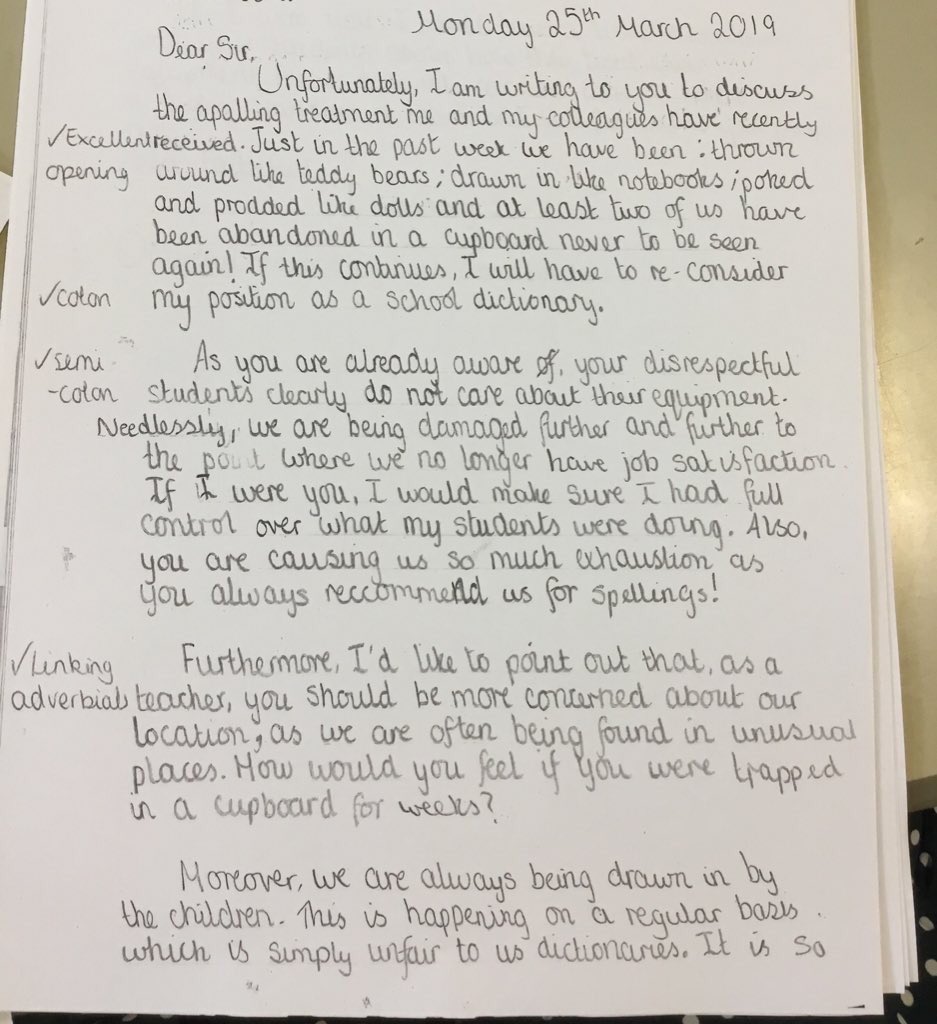 Monday 25th March 2019
Dear Sir,
Unfortunately, I am writing to you to discuss
the apalling treatment me and my colleagues have recently
✓Excellent received. Just in the past week we have been : thrown
opening around like teddy bears ; drawn in like notebooks ; poked
and prodded like dolls and at least two of us have
been abandoned in a cupboard never to be seen
again! If this continues, I will have to re-consider
✓colon my position as a school dictionary.
✓semi As you are already aware of, your disrespectful
-colon students clearly do not care about their equipment.
Needlessly, we are being damaged further and further to
the point where we no longer have job satisfaction.
If I were you, I would make sure I had full
control over what my students were doing. Also,
you are causing us so much exhaustion as
you always reccommend us for spellings!
✓Linking Furthermore, I'd like to point out that, as a
adverbials teacher, you should be more concerned about our
location, as we are often being found in unusual
places. How would you feel if you were trapped
in a cupboard for weeks?
Moreover, we are always being drawn in by
the children. This is happening on a regular basis.
which is simply unfair to us dictionaries. It is so